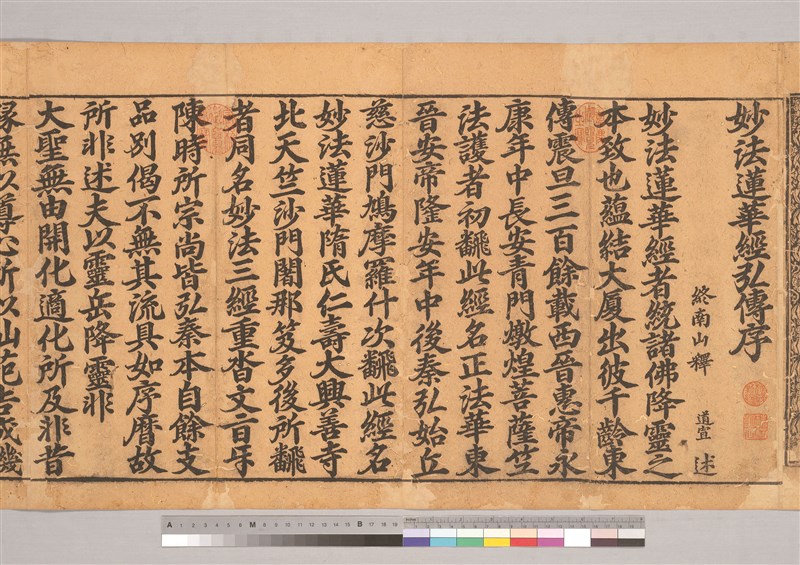 妙法蓮華經弘傳序
終南山釋 道宣 述
妙法蓮華經者統諸佛降靈之
本致也蘊結大厦出彼千齡東
傳震旦三百餘載西晉惠帝永
康年中長安青門燉煌菩薩竺
法護者初飜此經名正法華東
晉安帝隆安年中後秦弘始丘
慈沙門鳩摩羅什次飜此經名
妙法蓮華隋氏仁壽大興善寺
北天竺沙門闍那笈多後所飜
者同名妙法三經重沓文旨互
陳時所宗尚皆弘秦本自餘支
品別偈不無其流具如序曆故
所非述夫以靈岳降靈非
大聖無由開化適化所及非昔
緣無以導心所以仙苑告成機
A 1 2 3 4 5 6 M 8 9 10 11 12 13 14 15 B 17 18 19